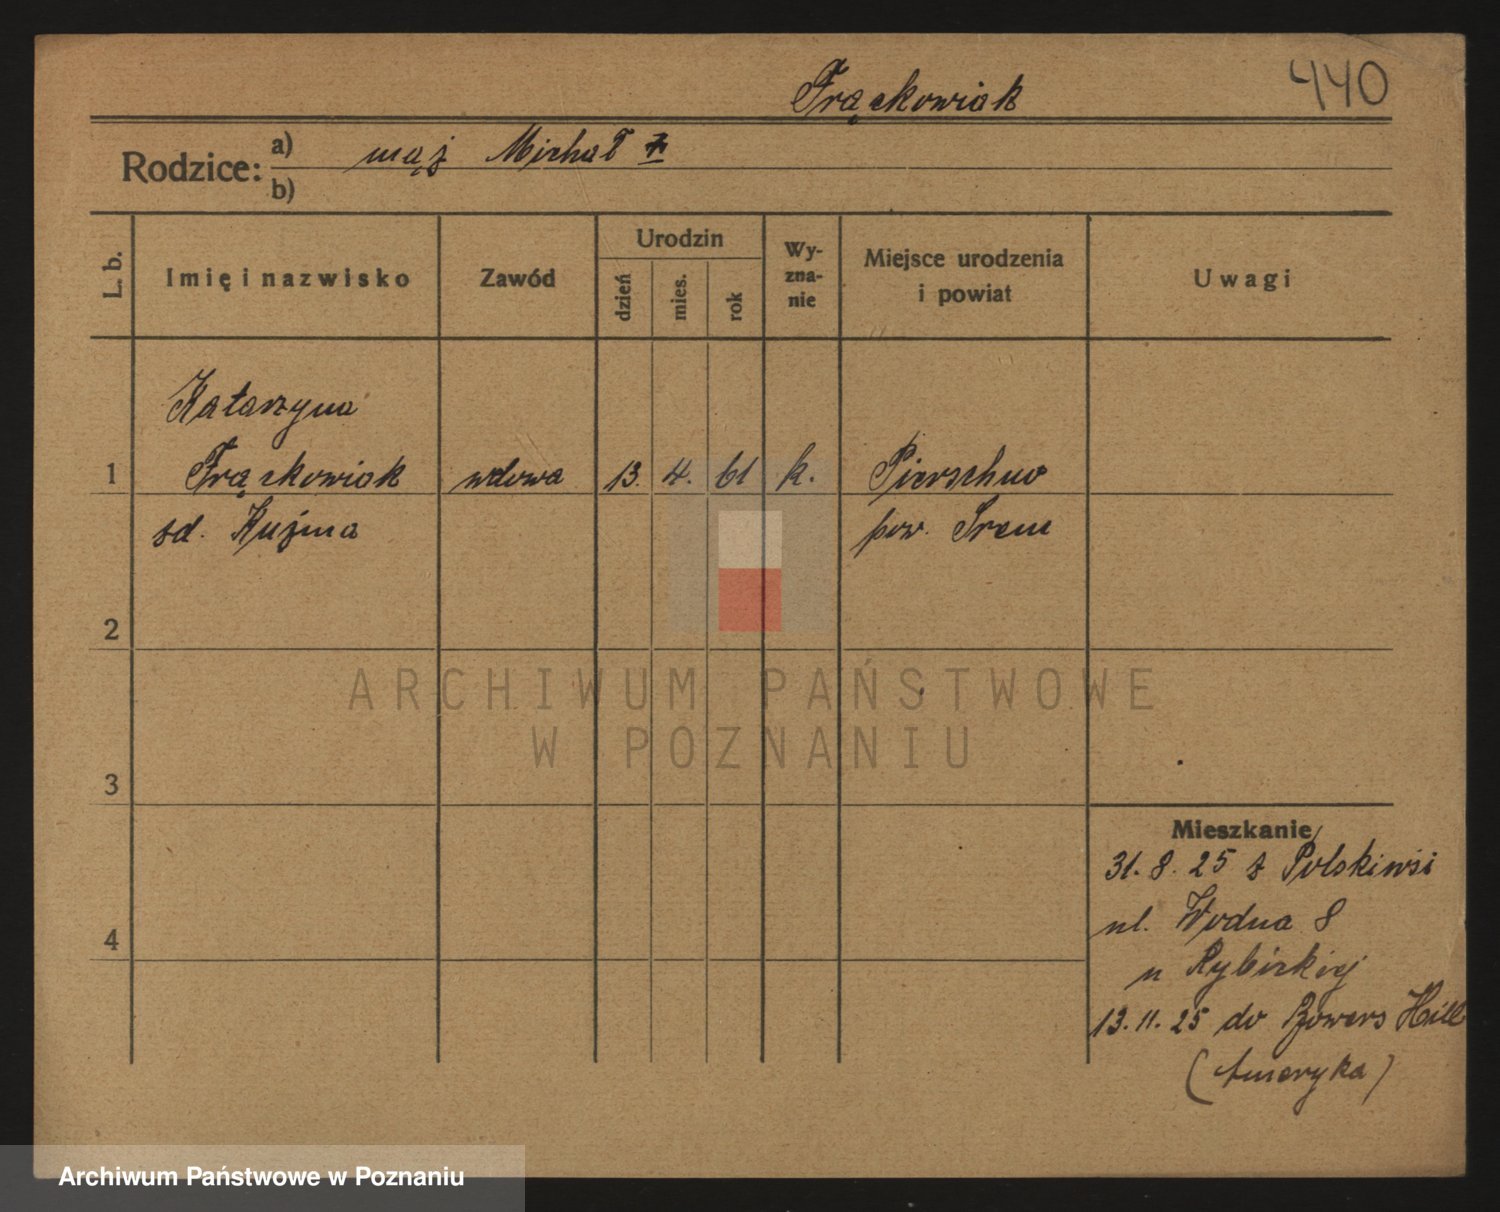 Frąckowiak 440
Rodzice: a) mąż Michał
b)
L. b.
Imię i nazwisko
Zawód
Urodzin
dzień
mies.
rok
Wy-
zna-
nie
Miejsce urodzenia
i powiat
Uwagi
Katarzyna
1 Frąckowiak wdowa 13. 4. 61 k. Pierzchno
zd. Kuźma pow. Śrem
2
3
4
Mieszkanie
31. 8. 25 z Polskiwsi
ul. Wodna 8
u Rybickiej
13. 11. 25 do Bowers Hill
(Ameryka)
ARCHIWUM PAŃSTWOWE
W POZNANIU
Archiwum Państwowe w Poznaniu